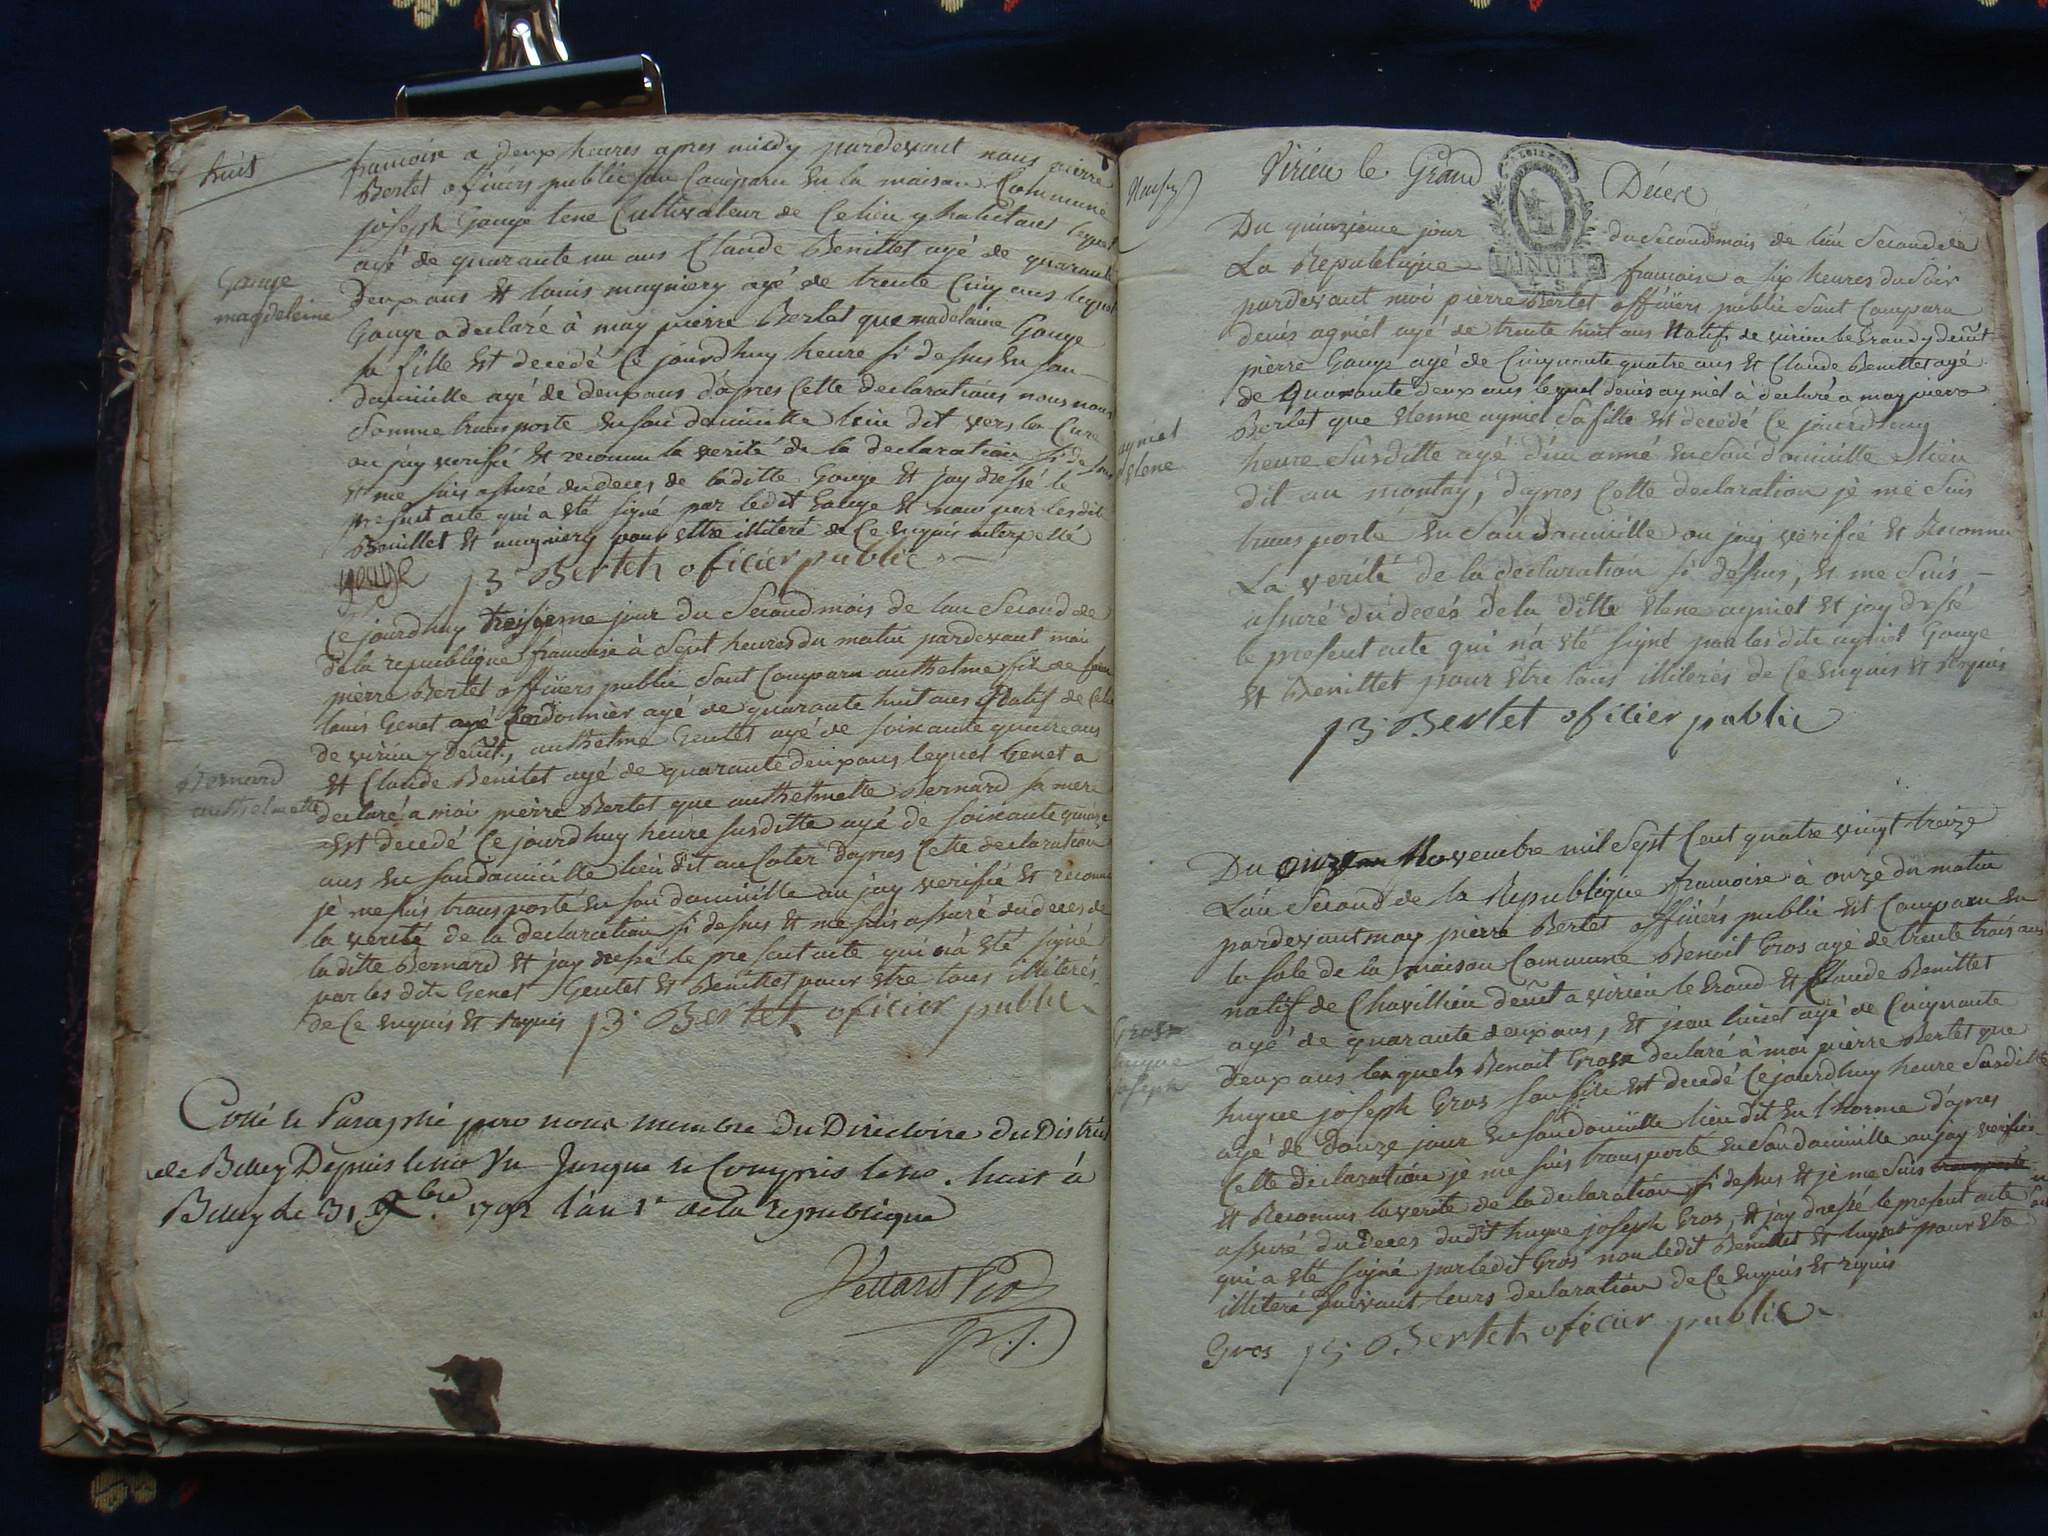 huit
francoise a deux heures apres midy pardevant nous pierre
Bertet officiers public son Comparu en la maison Commune
joseph Gouge lene Cultivateur de Celieu y habitant lequel
ayé de quarante un ans Claude Benittet ayé de quarante
Deux ans et louis magniery ayé de trente Cinq ans lequel
Gouge
magdeleine
Gouge a declaré à moy pierre Bertet que madelaine Gouge
sa fille est decedé Ce jourdhuy heure si dessus en son
domicille ayé de deux ans dapres Cette declarations nous nous
Somme transporte en son domicille lieu dit vers la Cure
ou jay verifié et reconnu la verité de la declaration si dessus
et me suis assuré du deces de laditte Gouge et jay dressé le
present acte qui a eté signé par ledit Gouge et non par lesdit
Benittet et magniery pour estre illiteré de Ce enquis interpellé
gouge p3 Bertet oficier public
Ce jourdhuy treisieme jour du Second mois de lan Second de
de la republique francoise à Sept heures du matin pardevant moi
pierre Bertet officiers public Sont Comparu anthelme fils de feu
louis Genet ayé Cordonnier ayé de quarante huit ans Natif de Celieu
de virieu y deut., anthelme Gentet ayé de soixante quatre ans
et Claude Benitet ayé de quarante deux ans lequel Genet a
Bernard
anthelmette
declaré a moi pierre Bertet que anthelmette Bernard sa mere
est decedé Ce jourdhuy heure susditte ayé de soixante quinze
ans en son domicille lieu dit au dapres Cette declaration
je me suis transporté en son domicille ou jay verifié et reconnu
la verité de la declaration si dessus et me suis assuré du deces de
laditte Bernard et jay dressé le present acte qui na eté signé
par les dit Genet Gentet et Benittet pour etre tous illiterés
de Ce enquis et requis p3 Bertet oficier public
Cotté et Paraphé par nous membre du Directoire du District
de Belley Depuis le no Un Jusque et Compris le no. huit à
Belley le 31 Xbre 1792 l'an 1er de la republique
neuf
Virieu le Grand Décès
MINUTE
Du quinzieme jour du Second mois de lan Second de
La Republique francoise a six heures du soir
pardevant moi pierre Bertet officiers public Sont Comparu
denis agniel ayé de trente huit ans Natif de virieu le Grand y deut
pierre Gouge ayé de Cinquante quatre ans et Claude Benittet ayé
de Quarante deux ans lequel denis agniel à declaré a moy pierre
agniel
elene
Bertet que elenne agniel sa fille est decedé Ce jourdhuy
heure Susditte ayé d'un anné en son domicille lieu
dit au montay, dapres Cette declaration je me Suis
transporté en Son domicille ou jay verifié et Reconnu
La verité de la declaration si dessus, et me Suis
assuré du decés de la ditte elene agniel et jay dressé
le present acte qui na eté signé par les dit agniel Gouge
et Benittet pour être tous illiterés de Ce enquis et Requis
p3 Bertet oficier public
Du onze Novembre mil Sept Cent quatre vingt treize
Lan Second de la Republique francoise à onze du matin
pardevant moy pierre Bertet officiers public est Comparu en
la sale de la maison Commune Benoit Gros ayé de trente trois ans
natif de Chavillieu deut a virieu le Grand et Claude Benittet
ayé de quarante deux ans, et jean ayé de Cinquante
Gros
hugue
joseph
deux ans lesquels Benoit Gros a declaré à moi pierre Bertet que
hugue joseph Gros son fils est decedé Ce jourdhuy heure Susditte
ayé de Douze jour en son domicille lieu dit en l'horme d'apres
Cette declaration je me suis transporté en son domicille ou jay verifié
et Reconnu la verité de la declaration si dessus et je me suis
assuré du deces dudit hugue joseph Gros, et jay dressé le present acte
qui a eté signé par ledit Gros non ledit Benittet et pour etre
illiteré Suivant leurs declaration de Ce enquis et requis
Gros p3 Bertet oficier public